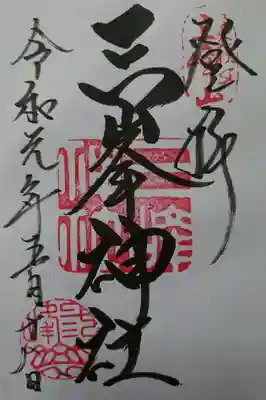 登拝
三峯神社
令和元年五月廿八日